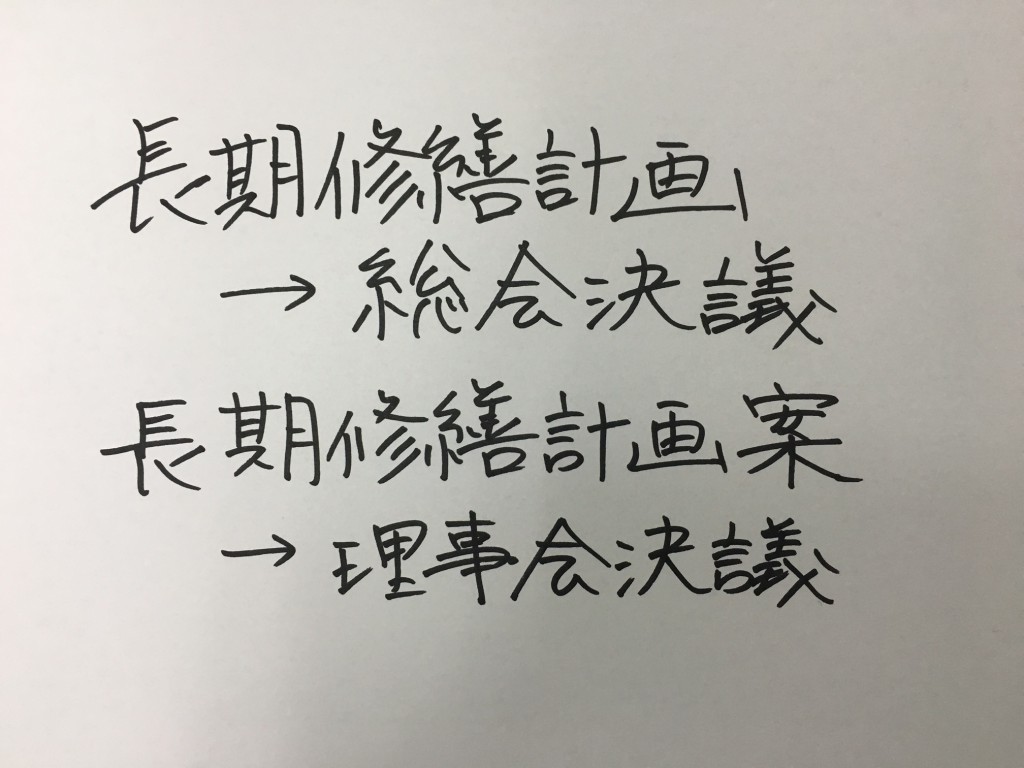 長期修繕計画
→ 総会決議
長期修繕計画案
→ 理事会決議